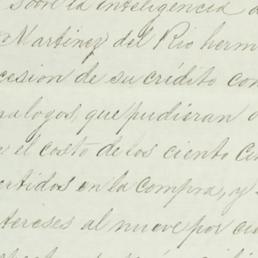 Sobre la inteligencia d
Martinez del Rio herm
cesion de su crédito con
nalogos, que pudieran o
el costo de los ciento cin
ertidos en la compra, y
ntereses al nueve por ci